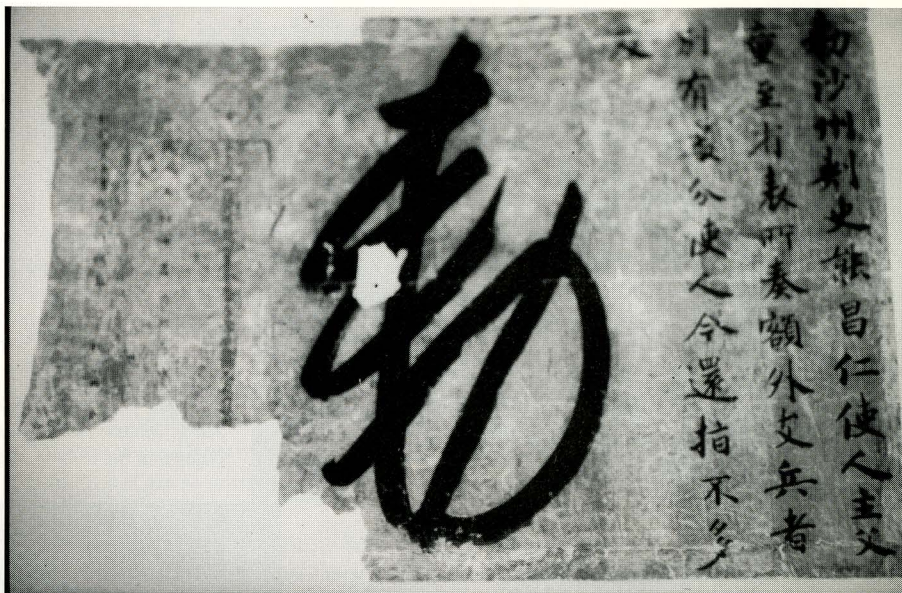 勅沙州刺史能昌仁使人主父
童至省表所奏額外支兵者
別有處分使人今還指不多
及
勅